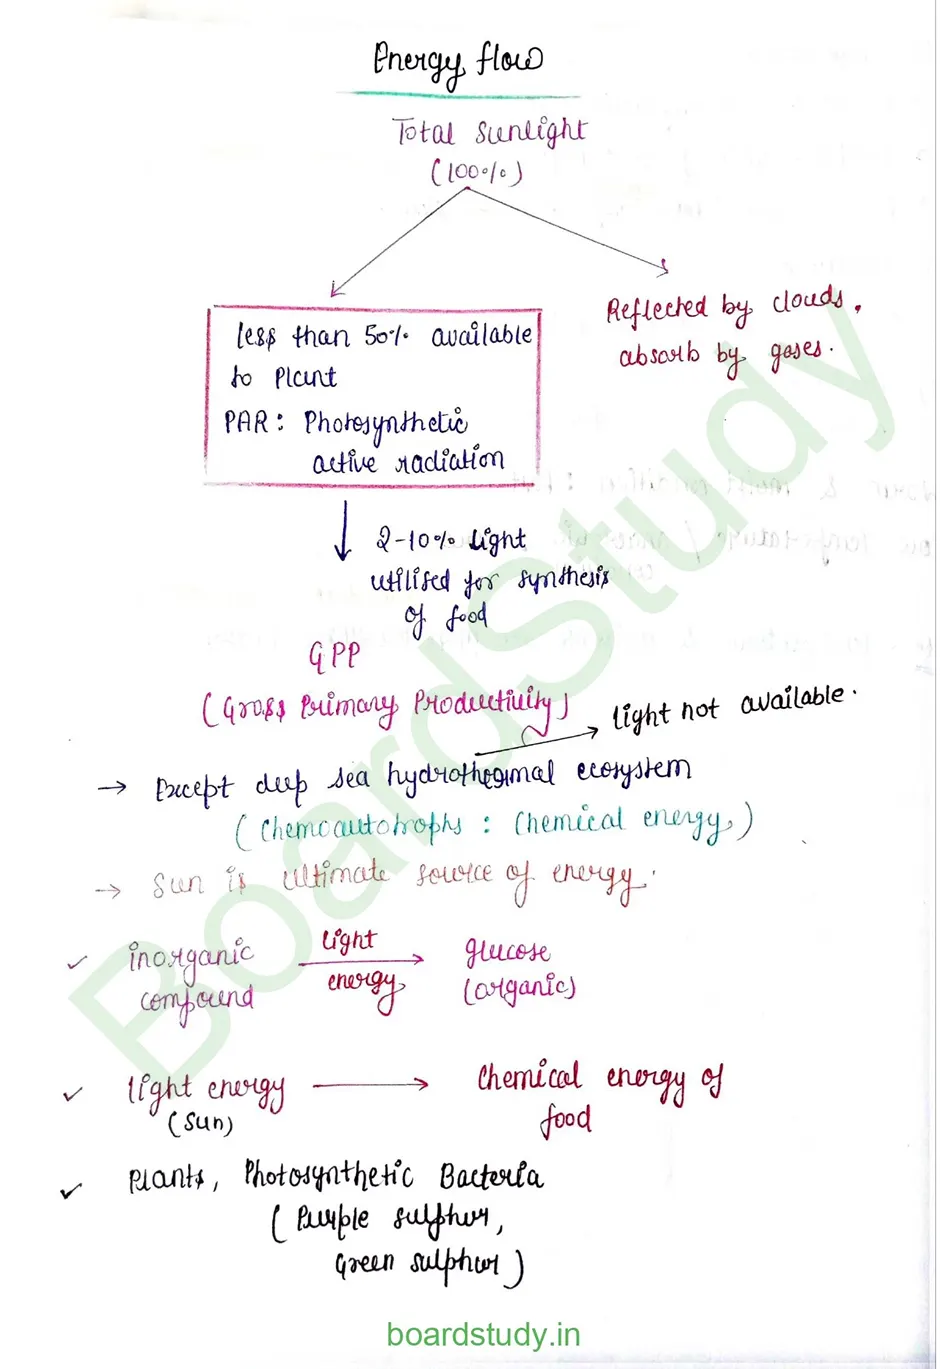 Energy flow
Total Sunlight
(100%)
Reflected by clouds,
absorb by gases.
less than 50% available
to Plant
PAR: Photosynthetic
active radiation
2-10% Light
utilised for synthesis
of food
GPP
(Gross Primary Productivity)
light not available.
→ Except deep sea hydrothermal ecosystem
(Chemoautotrophs : Chemical energy)
→ Sun is ultimate source of energy.
✓ inorganic compound
light energy
glucose
(organic)
✓ light energy → chemical energy of
(Sun)
food
✓ Plants, Photosynthetic Bacteria
(Purple sulphur,
Green sulphur)
BoardStudy
boardstudy.in